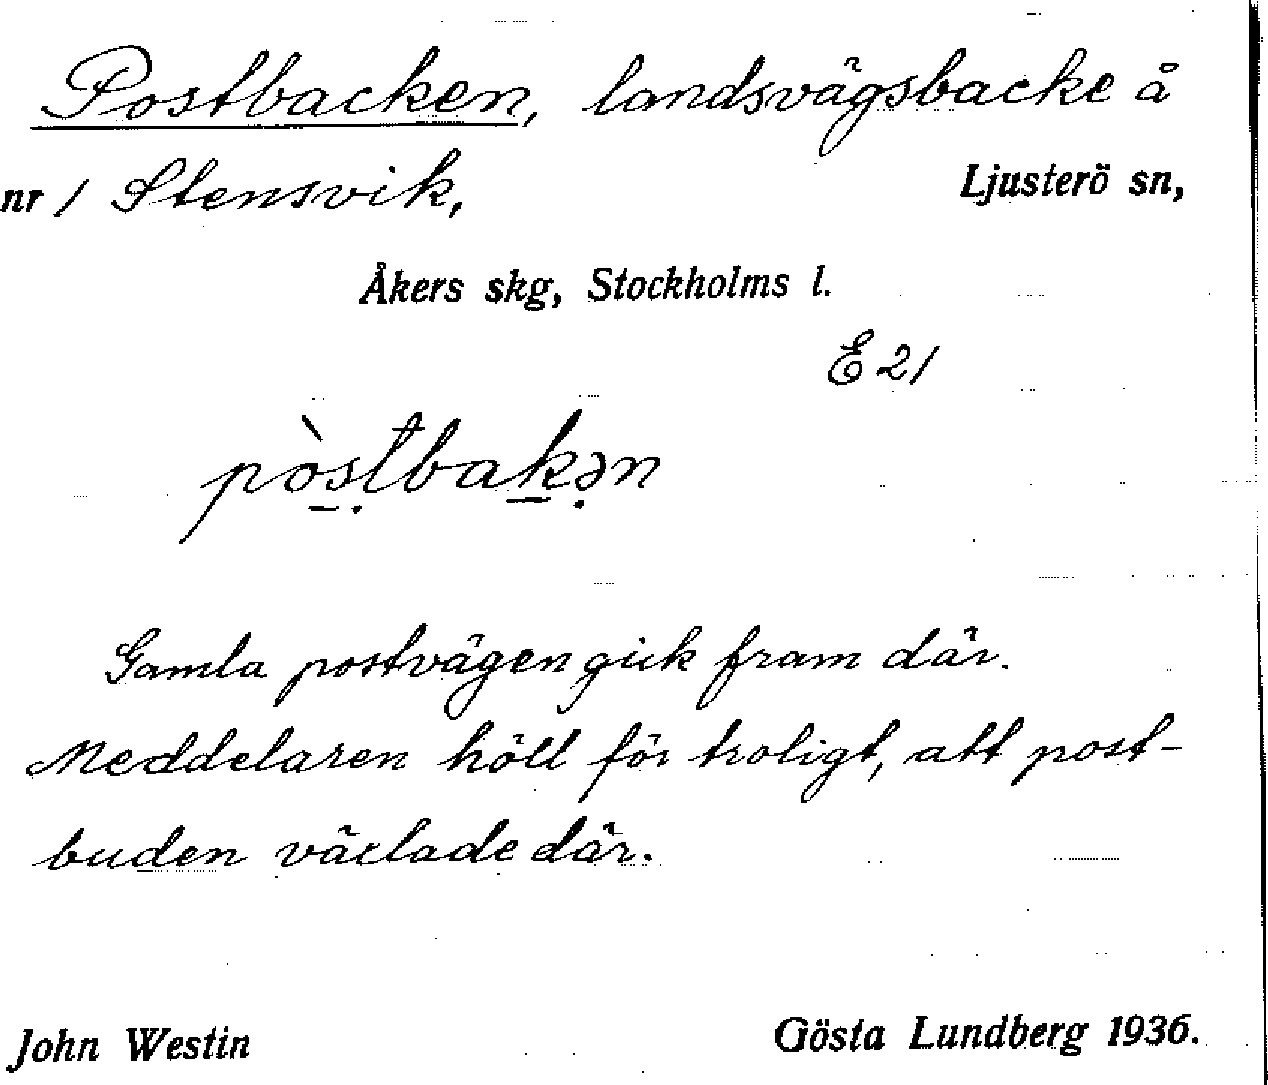 Postbacken, landsvägsbacke å
nr 1 Stensvik, Ljusterö sn,
Åkers skg, Stockholms l.
E 21
pò̱ṣtbaḵə̣n
Gamla postvägen gick fram där.
Meddelaren höll för troligt, att post-
buden växlade där.
John Westin Gösta Lundberg 1936.